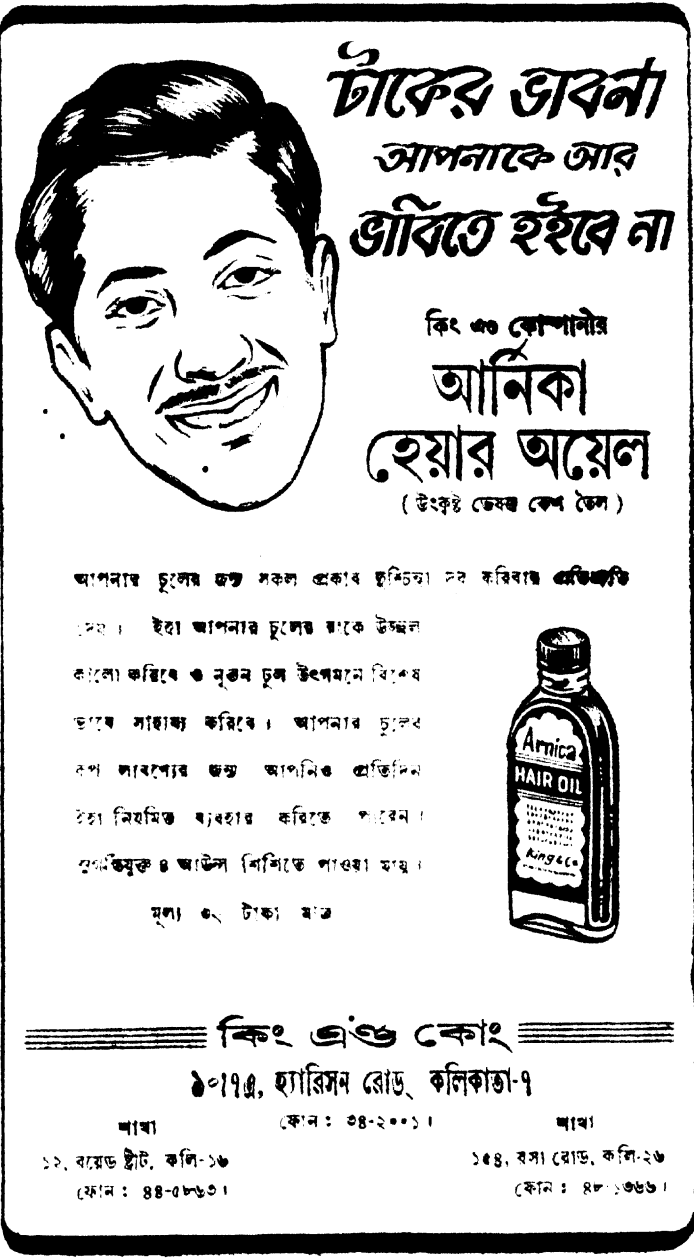 টাকের ভাবনা
আপনাকে আর
ভাবিতে হইবে না
কিং এণ্ড কোম্পানীর
আর্নিকা
হেয়ার অয়েল
( উৎকৃষ্ট ভেষজ কেশ তৈল )
আপনার চুলের জন্য সকল প্রকার দুশ্চিন্তা দূর করিবার প্রতিশ্রুতি
দেয়। ইহা আপনার চুলের রংকে উজ্জ্বল
কালো করিবে ও নূতন চুল উৎগমনে বিশেষ
ভাবে সাহায্য করিবে। আপনার চুলের
রূপ লাবণ্যের জন্য আপনিও প্রতিদিন
ইহা নিয়মিত ব্যবহার করিতে পারেন।
৪ আউন্স শিশিতে পাওয়া যায়।
মূল্য ৩৲ টাকা মাত্র
Arnica
HAIR OIL
King & Co
কিং এণ্ড কোং
৯০।৭এ, হ্যারিসন রোড, কলিকাতা-৭
ফোন : ৩৪-২০০১।
শাখা
১২, রয়েড ষ্ট্রীট, কলি-১৬
ফোন : ৪৪-৫৮৬৩।
শাখা
১৫৪, রসা রোড, কলি-২৬
ফোন : ৪৮-১৩৬৬।